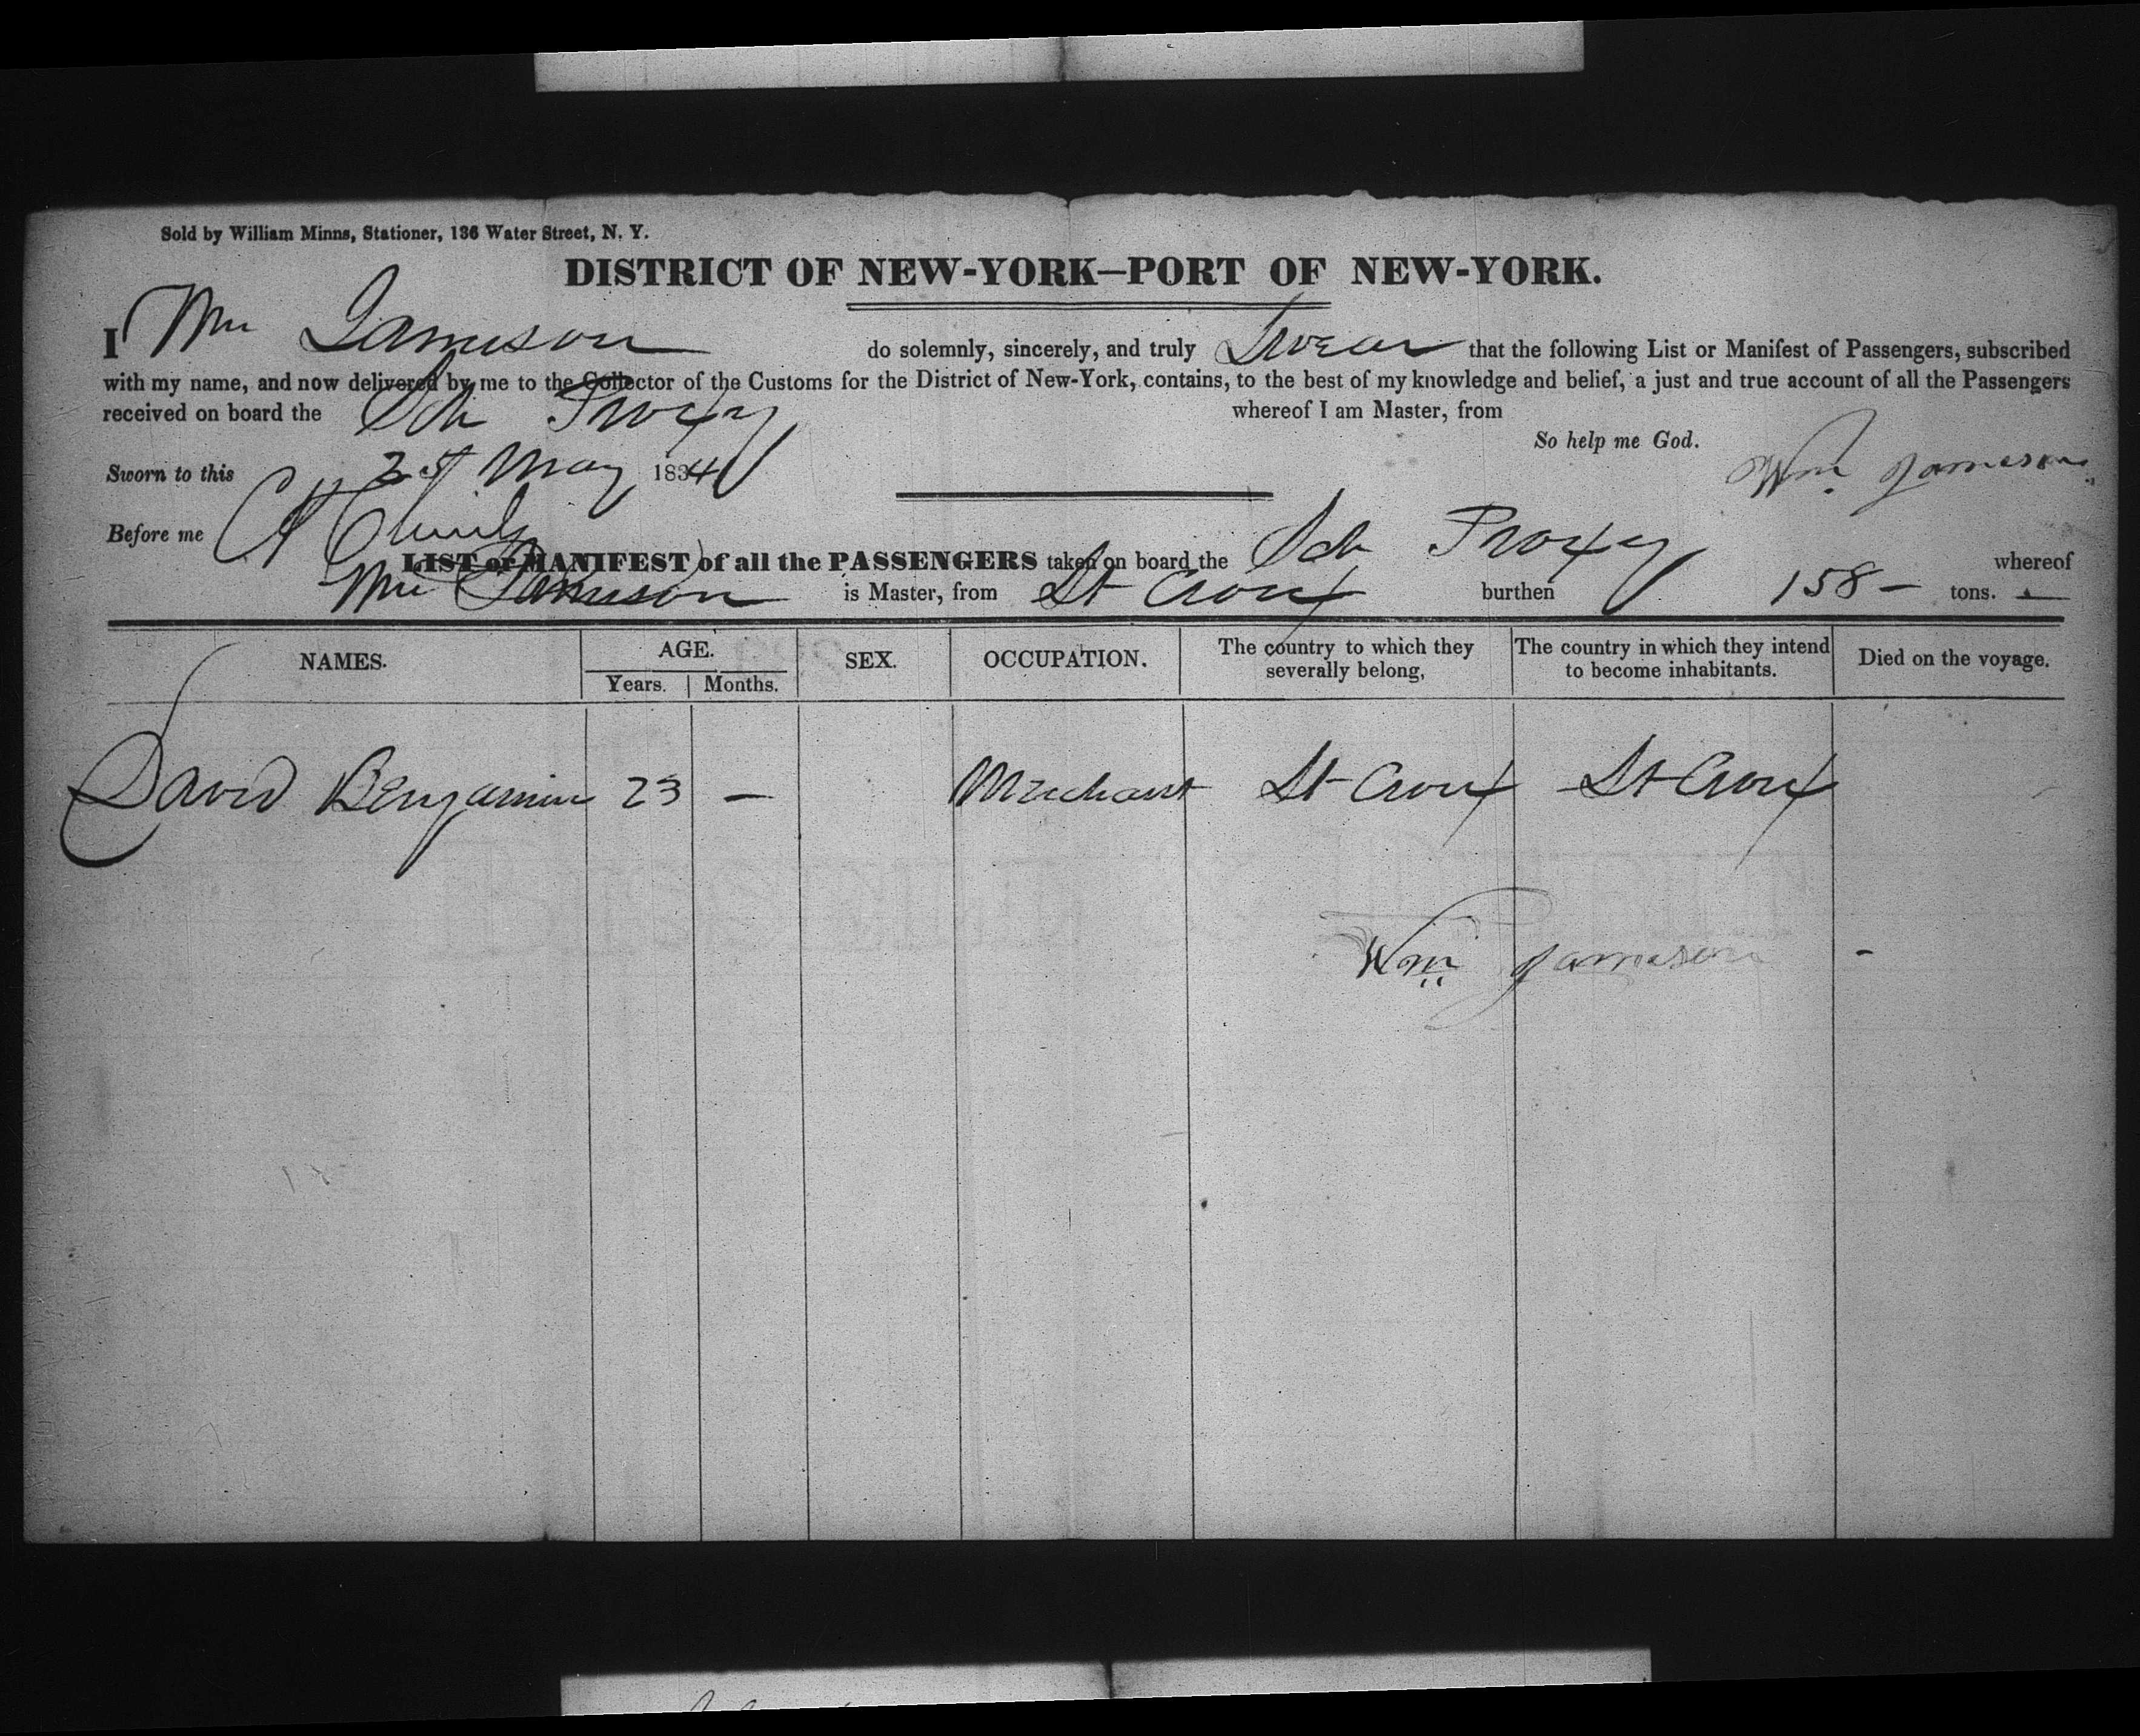 Sold by William Minns, Stationer, 136 Water Street, N. Y.
DISTRICT OF NEW-YORK—PORT OF NEW-YORK.
I Wm Jameson do solemnly, sincerely, and truly Swear that the following List or Manifest of Passengers, subscribed
with my name, and now delivered by me to the Collector of the Customs for the District of New-York, contains, to the best of my knowledge and belief, a just and true account of all the Passengers
received on board the Sch Proxy whereof I am Master, from
So help me God.
Sworn to this May 1834 Wm Jameson
Before me
LIST or MANIFEST of all the PASSENGERS taken on board the Sch Proxy whereof
Wm Jameson is Master, from St Croix burthen 158 – tons.
NAMES. AGE. SEX. OCCUPATION. The country to which they severally belong, The country in which they intend to become inhabitants. Died on the voyage.
Years. Months.
David Benjamin 23 — Merchant St Croix St Croix
Wm Jameson -